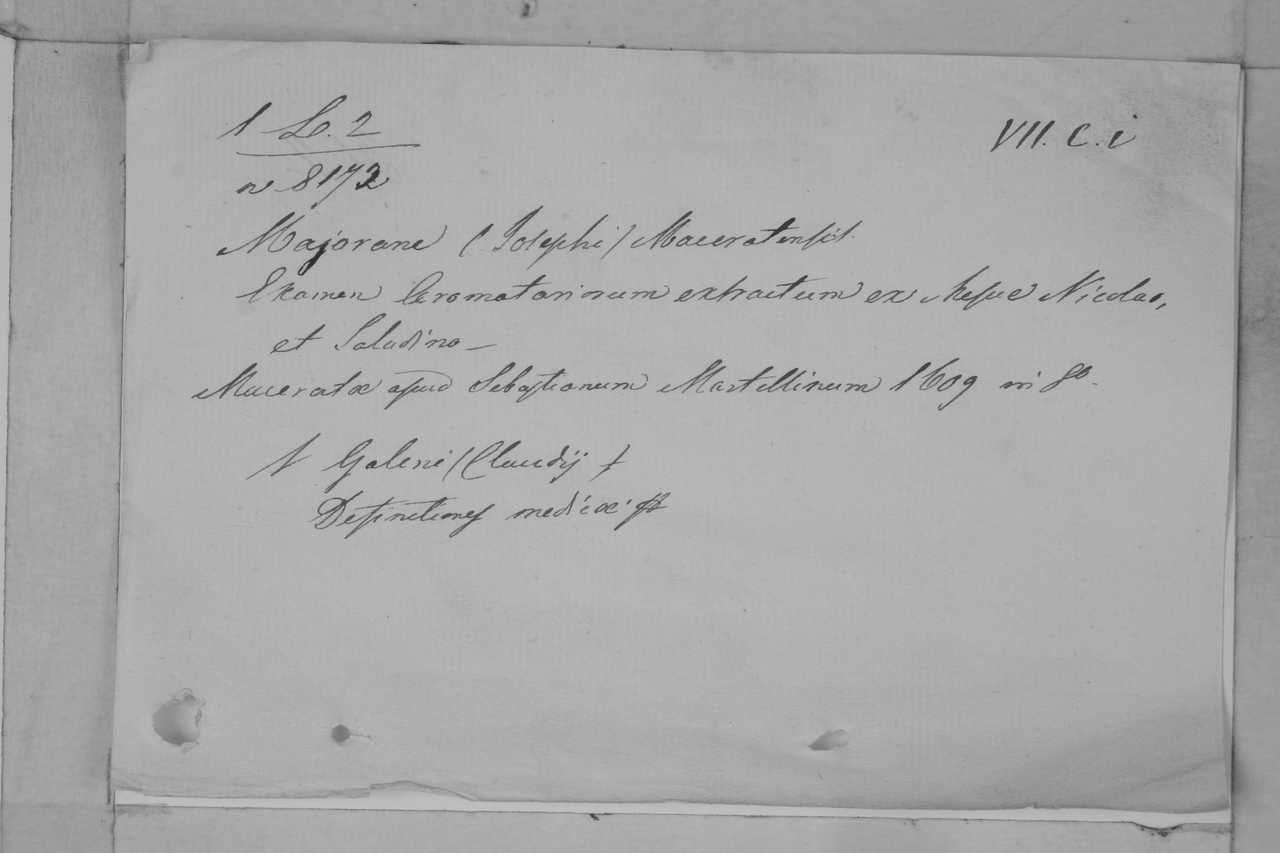 1 L. 2
VII. C. i
n 8172
Majorane (Josephi) Maceratensis.
Examen Aromatariorum extractum ex Mesue Nicolao,
et Saladino _
Maceratæ apud Sebastianum Martellinum 1609 in 8º.
Galeni (Claudij)
Definitiones medicæ